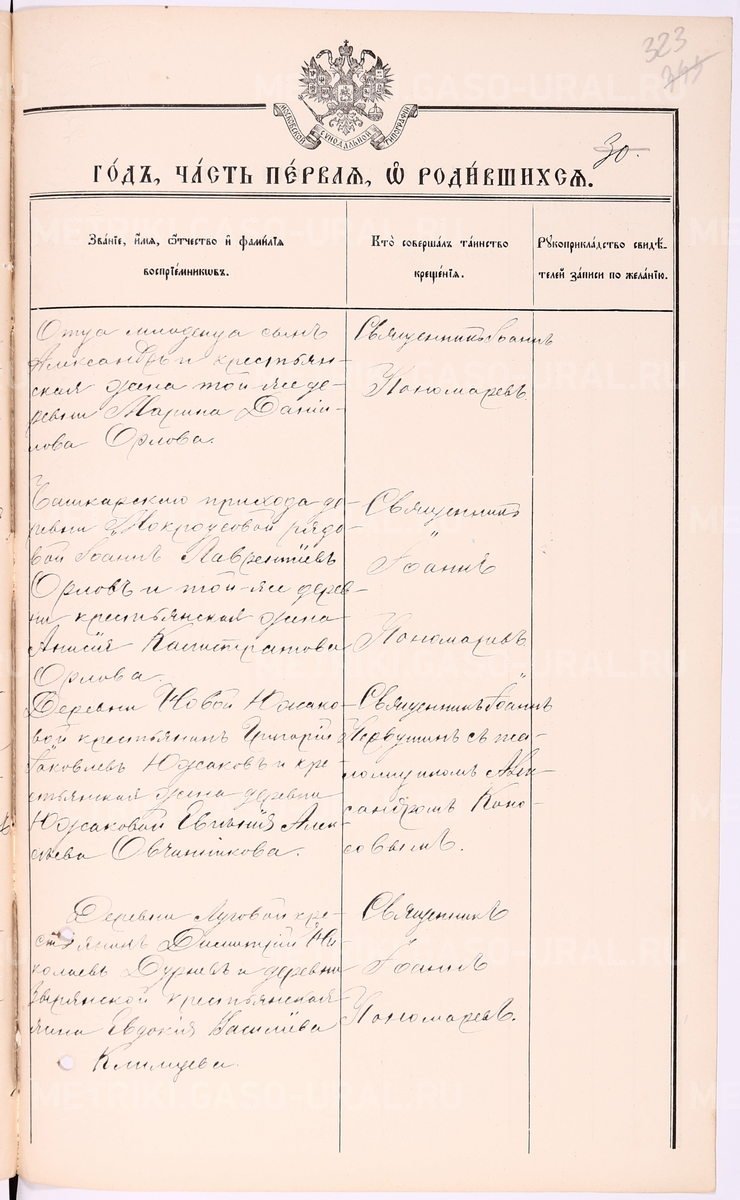 323
МОСКОВСКОЙ СѴНОДАЛЬНОЙ ТИПОГРАФІИ
30.
ГО́ДЪ, ЧА́СТЬ ПЕ́РВАЯ, Ѡ҆ РОДИ́ВШИХСЯ.
Зва́нїе, и҆́мя, ѻ҆́тчество и҆ фами́лїя
воспрїе́мниковъ.
Кто̀ соверша́лъ та́инство
креще́нїя.
Рꙋкоприкла́дство свидѣ́-
телей за́писи по жела́нїю.
Отца младенца сынъ
Александръ и крестьян-
ская жена той же де-
ревни Марина Данiи-
лова Орлова.
Священникъ Іоаннъ
Пономаревъ
Башкарскаго прихода де-
ревни Мокроусовой рядо-
вой Іоаннъ Лаврентіевъ
Орловъ и той же дерев-
ни крестьянская жена
Анисія Калистратова
Орлова.
Священникъ
Іоаннъ
Пономаревъ.
Деревни Новой Южако-
вой крестьянинъ Григорій
Іаковлевъ Южаковъ и кре-
стьянская жена деревни
Южаковой Евгенія Алек-
сѣева Овчинникова.
Священникъ Іоаннъ
Червушинъ съ пса-
ломщикомъ Алек-
сандромъ Коно-
совымъ.
Деревни Луговой кре-
стьянинъ Димитрій Ни-
колаевъ Дурневъ и деревни
Зырянской крестьянская
жена Евдокія Василіева
Климцева.
Священникъ
Іоаннъ
Пономаревъ.
METRIKI.GASO-URAL.RU